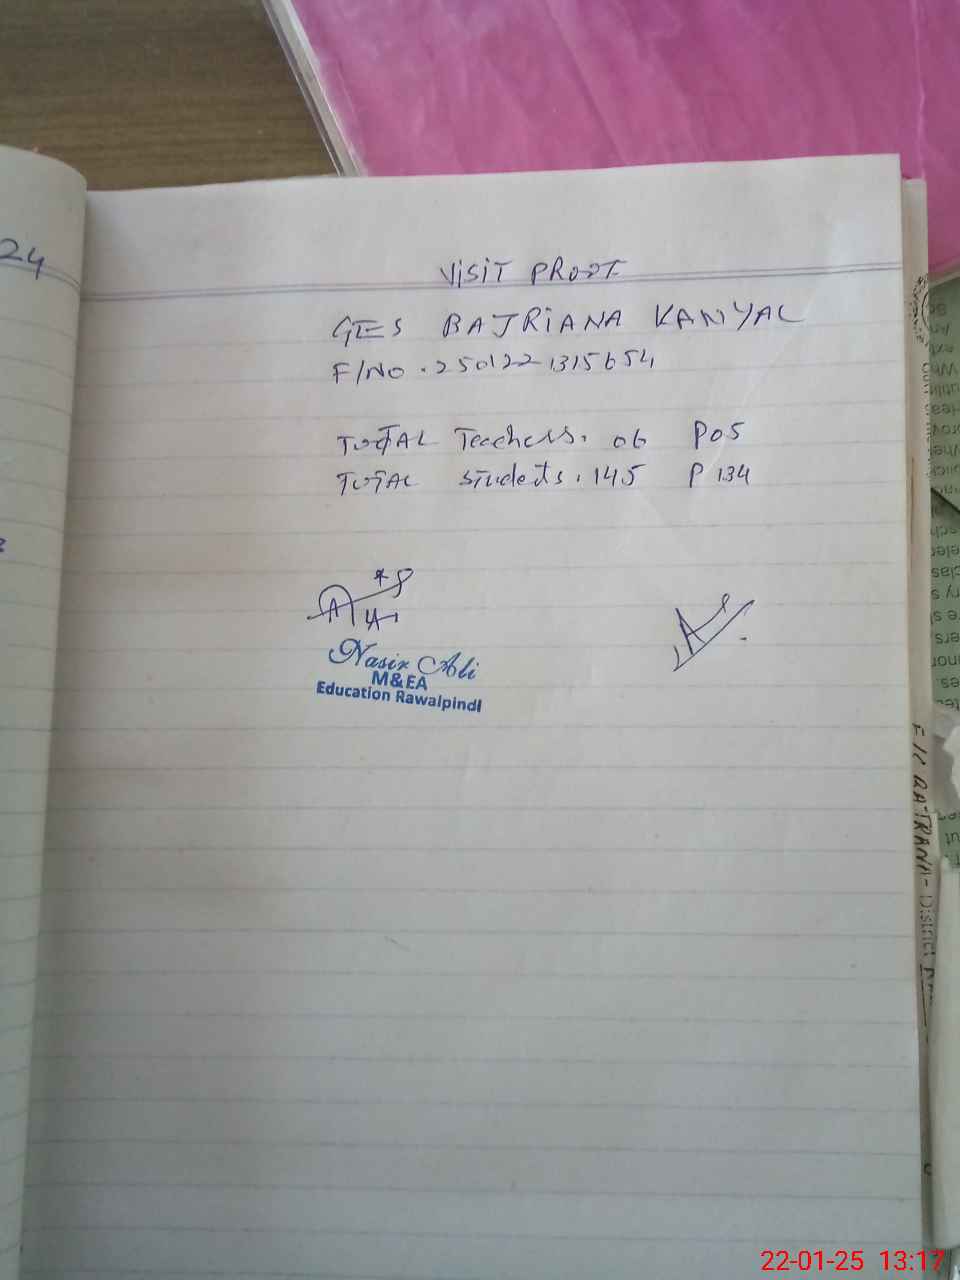 24
VISIT PROOF
GES BAJRIANA KANYAL
F/NO . 250122 1315654
TOTAL Teachers. 06 P05
TOTAL students. 145 P 134
Nasir Ali
M&EA
Education Rawalpindi
RATRANA- District
22-01-25 13:17